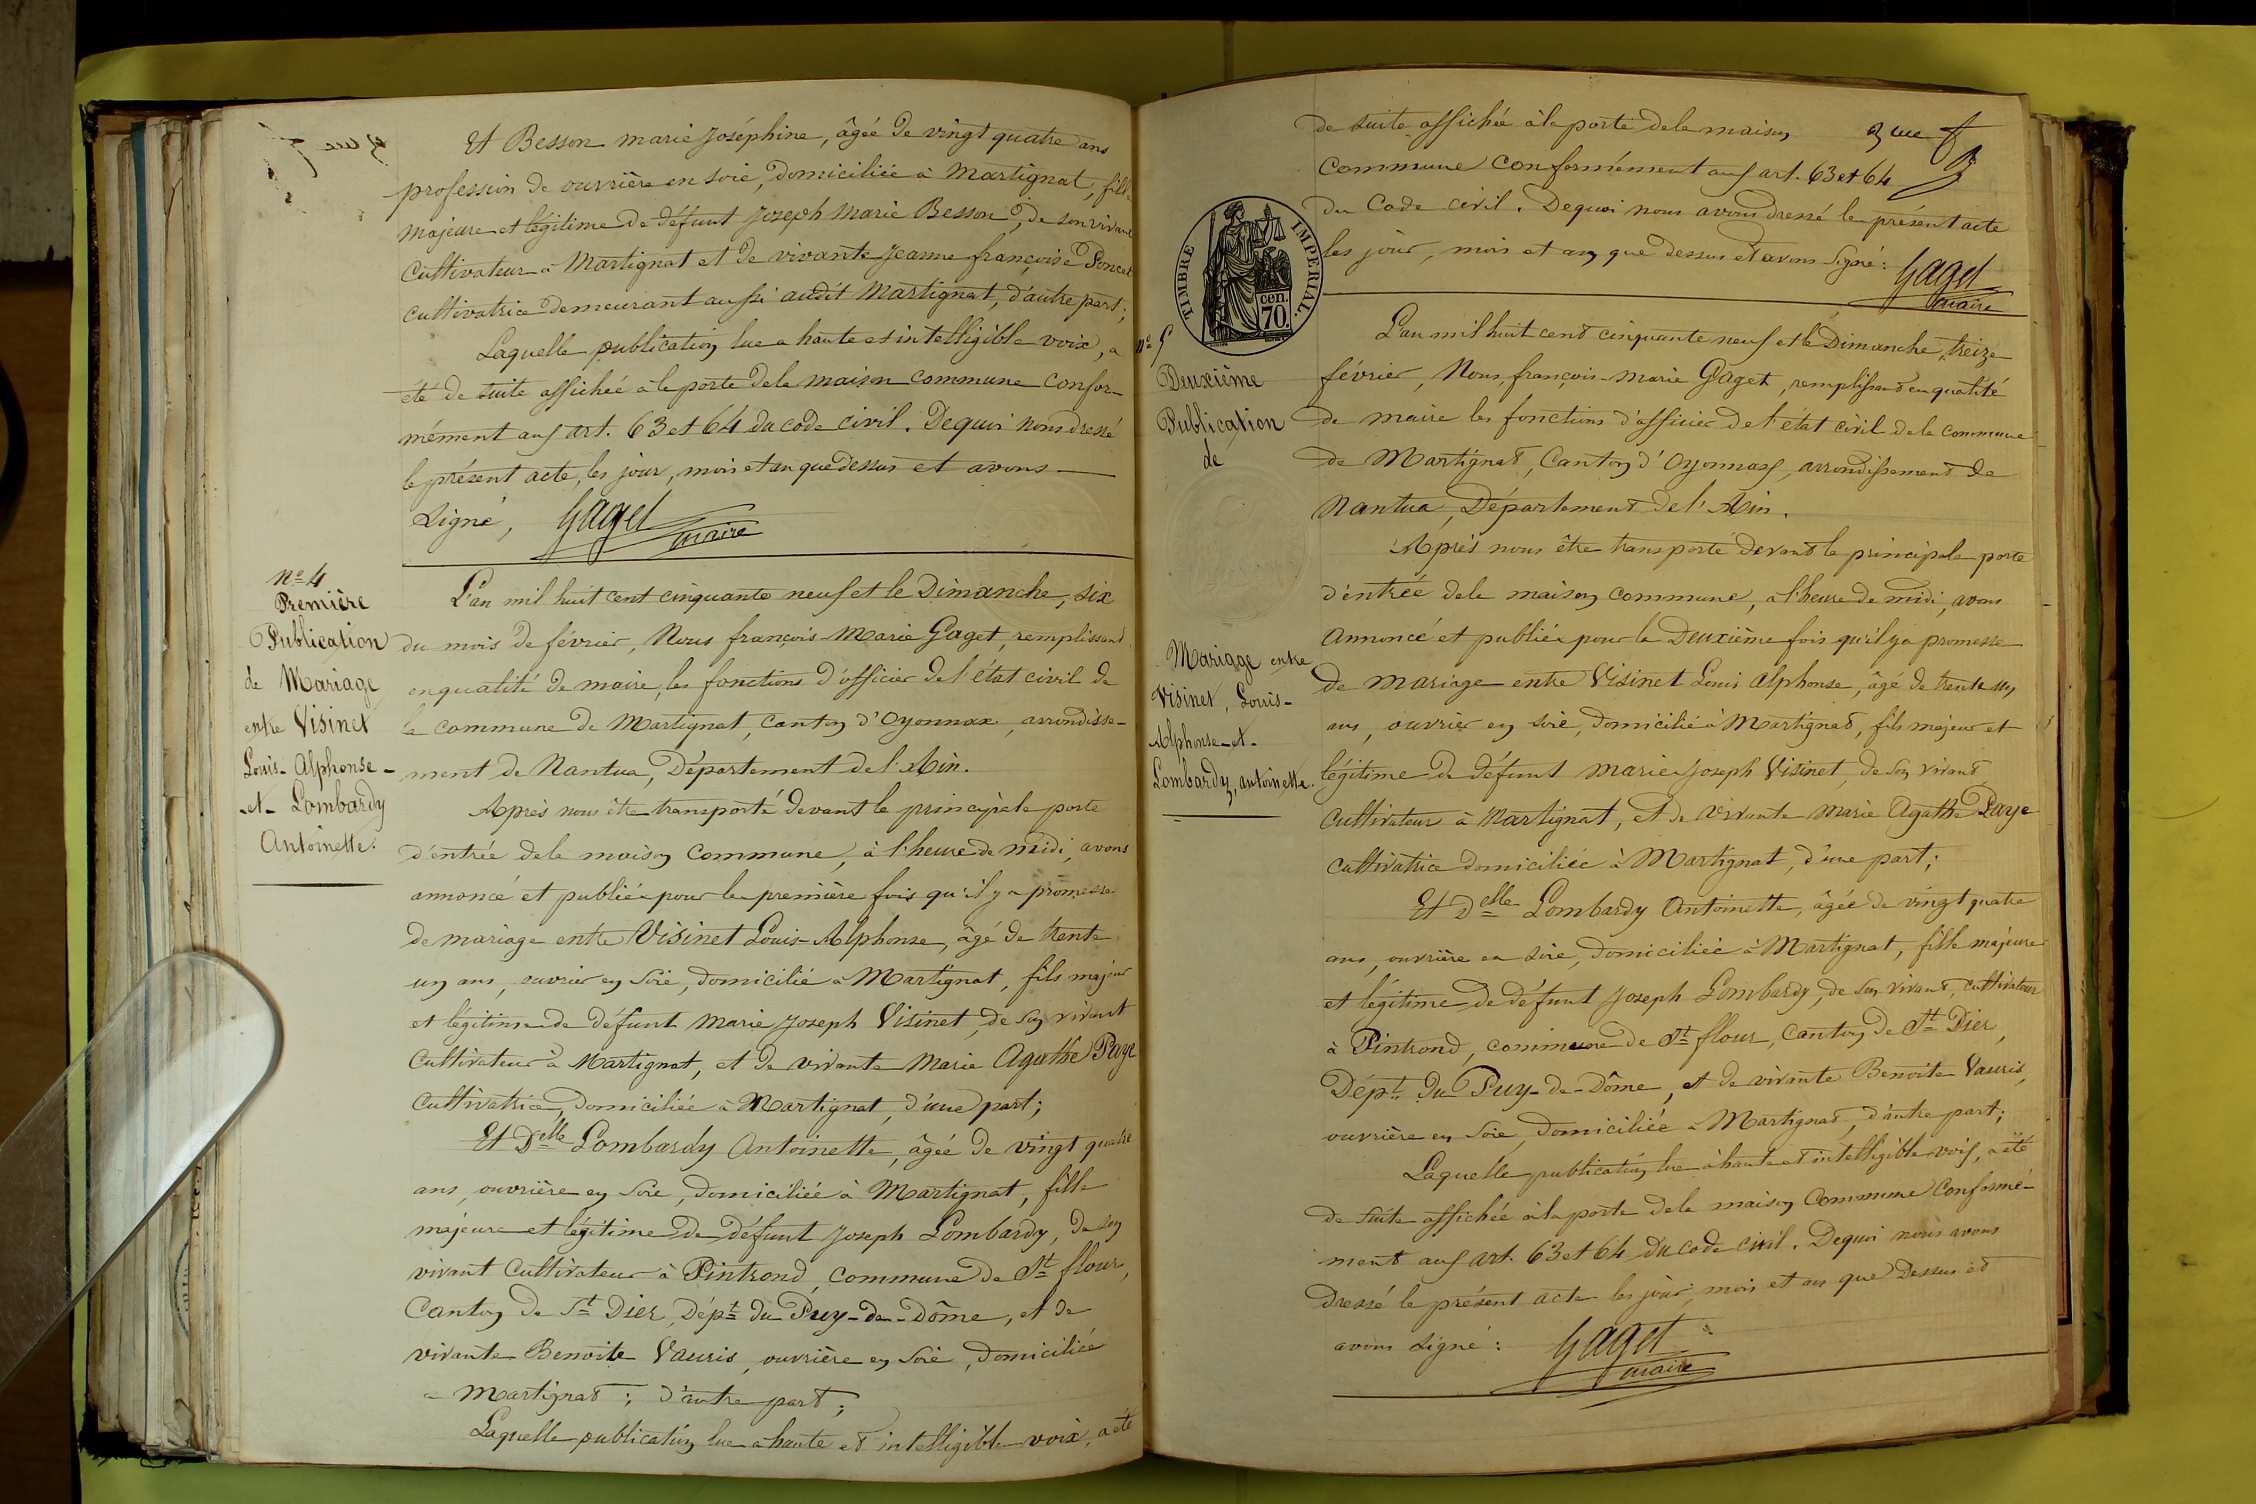 Et Besson marie Joséphine, âgée de vingt quatre ans
profession de ouvrière en soie, domiciliée à Martignat, fille
majeure et légitime de défunt Joseph Marie Besson, de son vivant
Cultivateur à Martignat et de vivante Jeanne françoise Poncet
cultivatrice demeurant aussi audit Martignat, d'autre part;
Laquelle publication lue a haute et intelligible voix, a
été de suite affichée à la porte de la maison commune confor-
mément aux art. 63 et 64 du code civil. De quoi nous dressé
le présent acte, les jour, mois et an que dessus et avons
signé, Gaget
maire
N° 4
Première
Publication
de Mariage
entre Visinet
Louis-Alphonse-
et- Lombardy
Antoinette.
L'an mil huit cent cinquante neuf et le Dimanche, six
du mois de février, Nous françois-Marie Gaget, remplissant
en qualité de maire, les fonctions d'officier de l'état civil de
la commune de Martignat, canton d'Oyonnax, arrondisse-
ment de Nantua, Département de l'Ain.
Après nous être transporté devant la principale porte
d'entrée de la maison commune, à l'heure de midi, avons
annoncé et publiée pour la première fois qu'il y a promesse
de mariage entre Visinet Louis-Alphonse, âgé de trente
un ans, ouvrier en soie, domicilié à Martignat, fils majeur
et légitime de défunt Marie Joseph Visinet, de son vivant
Cultivateur à Martignat, et de vivante Marie Agathe Paye
Cultivatrice, domiciliée à Martignat, d'une part;
Et Delle Lombardy Antoinette, âgée de vingt quatre
ans, ouvrière en soie, domiciliée à Martignat, fille
majeure et légitime de défunt Joseph Lombardy, de son
vivant Cultivateur à Pintrond, commune de St flour,
Canton de St Dier, Dépt du Puy-de-Dôme, et de
vivante Benoite Vauris, ouvrière en soie, domiciliée
à Martignat; d'autre part;
Laquelle publication lue à haute et intelligible voix, a été
de suite affichée à la porte de la maison
Commune conformément aux art. 63 et 64
du Code civil. De quoi nous avons dressé le présent acte
les jour, mois et an que dessus et avons signé: Gaget
maire
TIMBRE IMPÉRIAL.
cen.
70.
n° 5
Deuxième
Publication
de
Mariage entre
Visinet, Louis-
Alphonse-et-
Lombardy, antoinette.
L'an mil huit cent cinquante neuf et le Dimanche, treize
février, Nous, françois-Marie Gaget, remplissant en qualité
de maire les fonctions d'officier de l'état civil de la commune
de Martignat, Canton d'Oyonnax, arrondissement de
Nantua, Département de l'Ain.
Après nous être transporté devant la principale porte
d'entrée de la maison commune, à l'heure de midi, avons
annoncé et publiée pour la Deuxième fois qu'il y a promesse
de mariage entre Visinet Louis Alphonse, âgé de trente un
ans, ouvrier en soie, domicilié à Martignat, fils majeur et
légitime de défunt Marie Joseph Visinet, de son vivant
Cultivateur à Martignat, et de vivante Marie Agathe Paye
Cultivatrice domiciliée à Martignat, d'une part;
Et Delle Lombardy Antoinette, âgée de vingt quatre
ans, ouvrière en soie, domiciliée à Martignat, fille majeure
et légitime de défunt Joseph Lombardy, de son vivant, cultivateur
à Pintrond, commune de St flour, Canton de St Dier,
Dépt du Puy-de-Dôme, et de vivante Benoite Vauris,
ouvrière en soie, domiciliée à Martignat, d'autre part;
Laquelle publication lue à haute et intelligible voix, a été
de suite affichée à la porte de la maison Commune Conformé-
ment aux art. 63 et 64 du code civil. De quoi nous avons
dressé le présent acte les jour, mois et an que Dessus et
avons signé: Gaget
maire